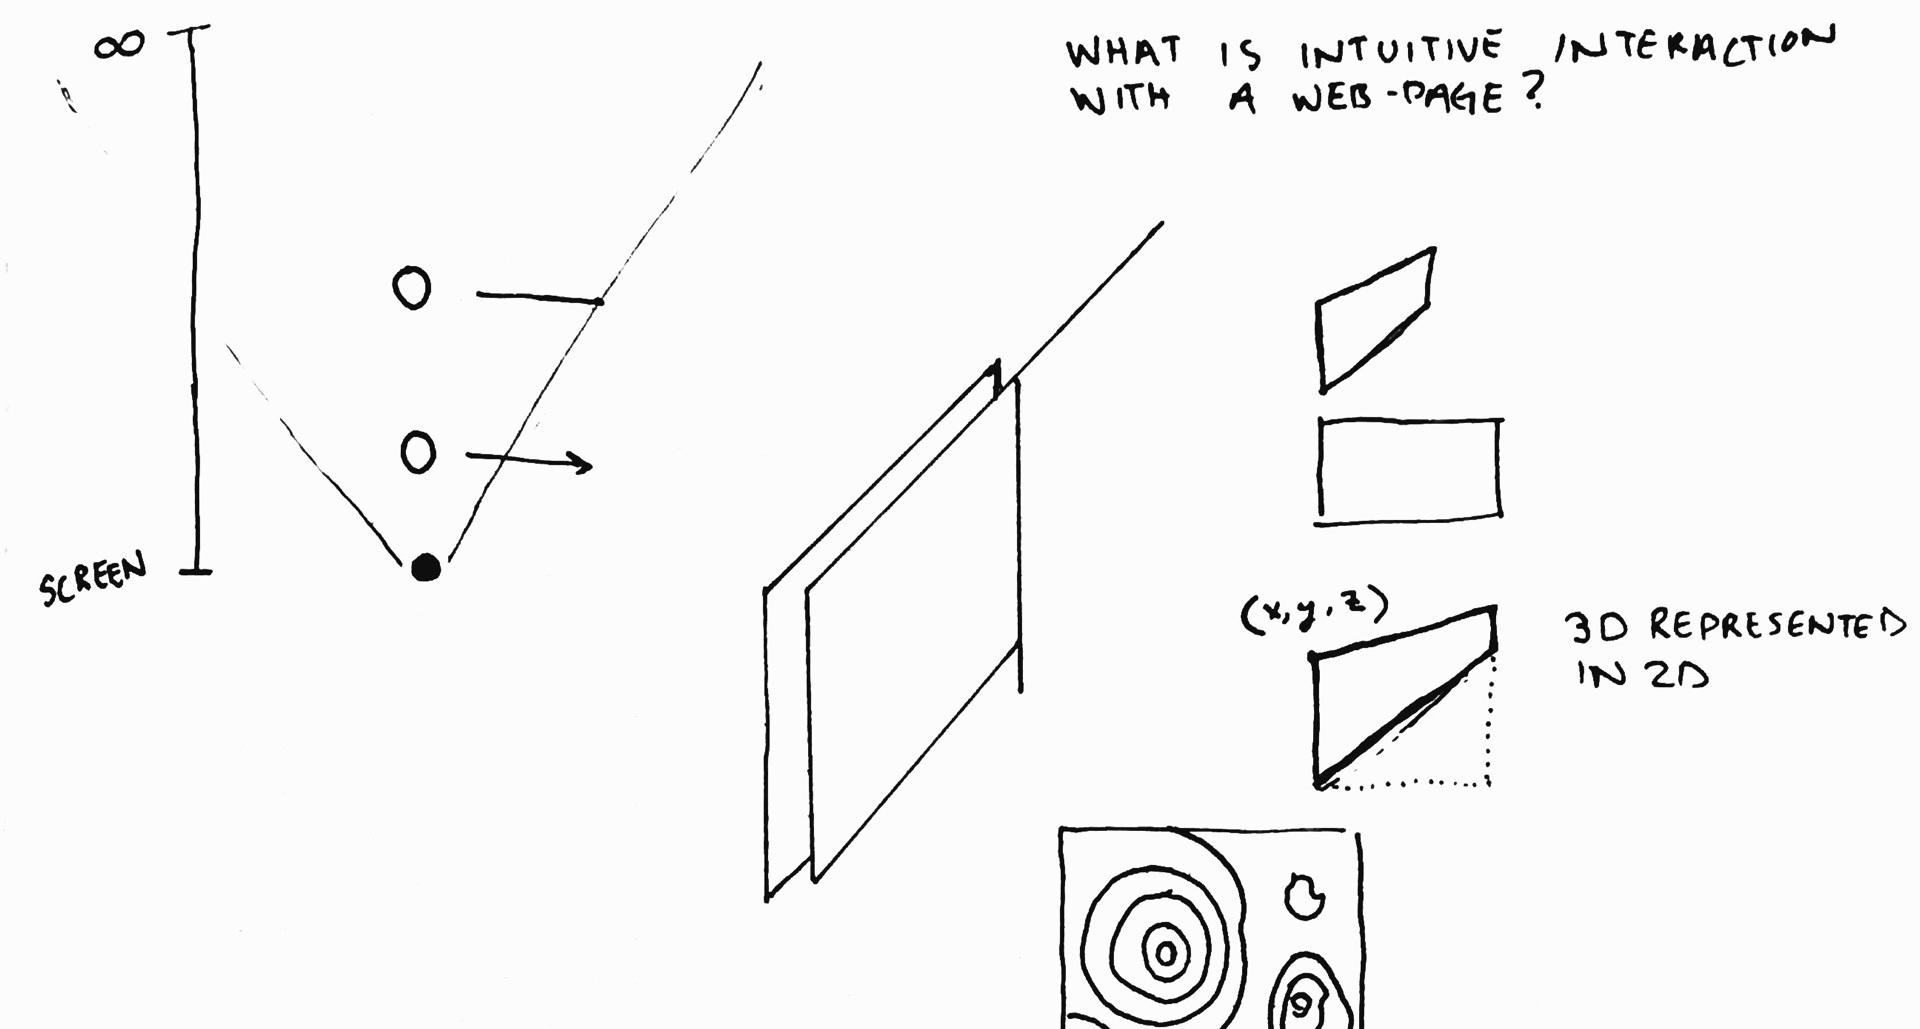 ∞
WHAT IS INTUITIVE INTERACTION
WITH A WEB-PAGE?
SCREEN
(x,y,z)
3D REPRESENTED
IN 2D